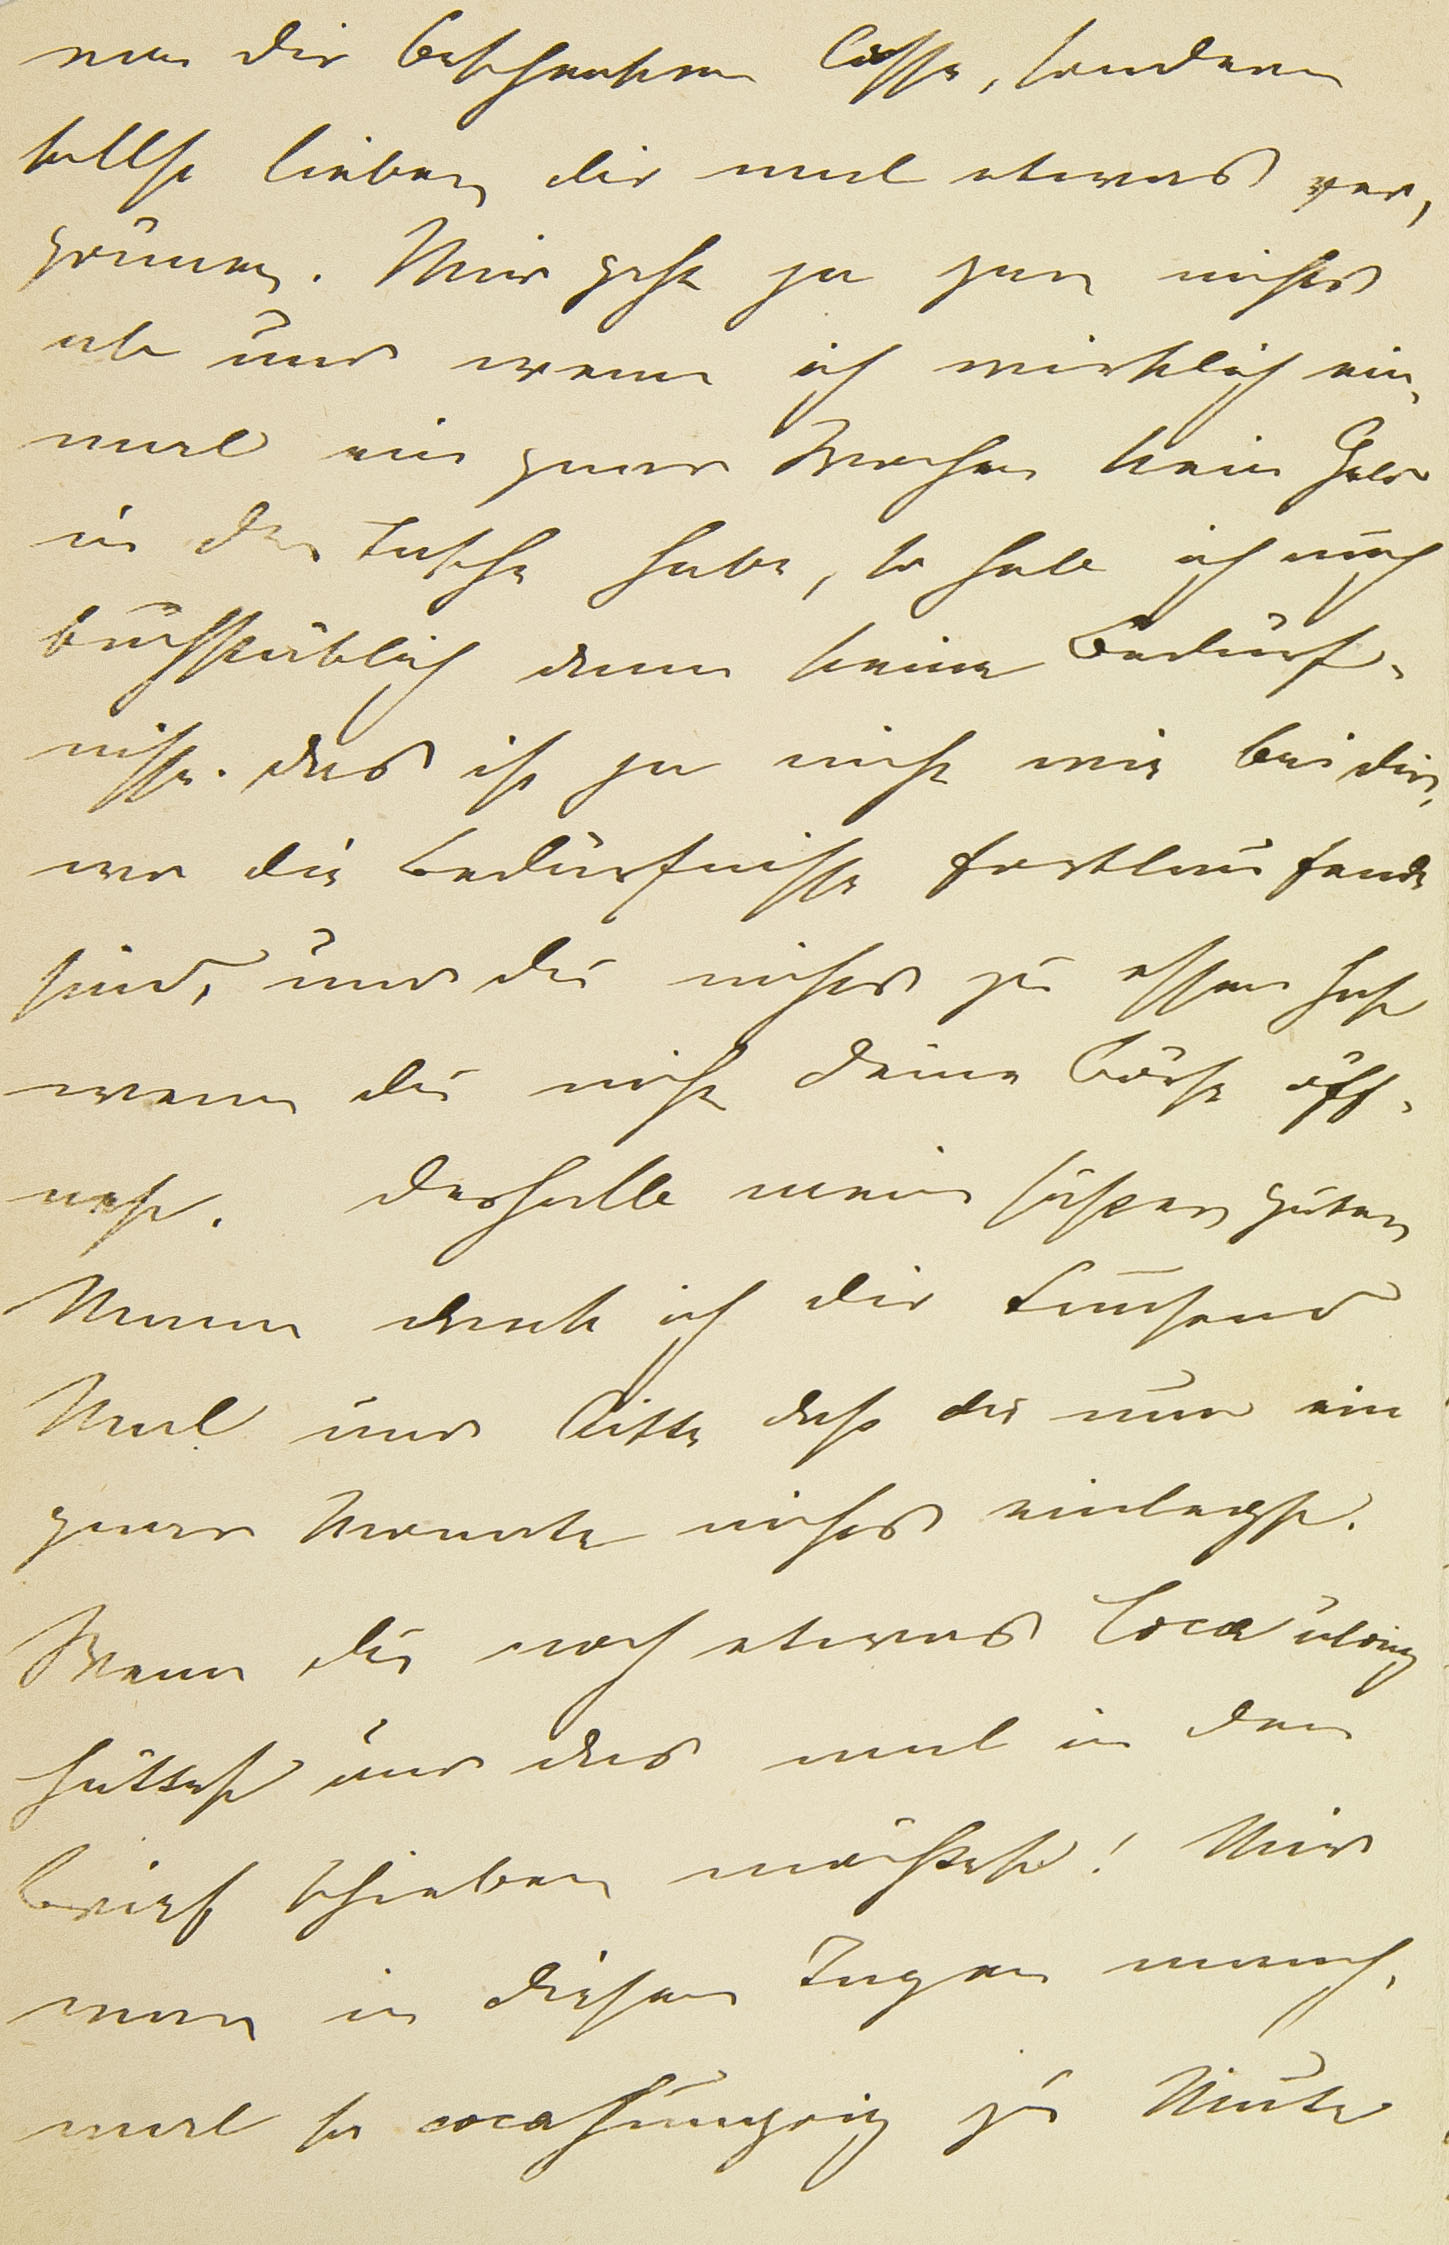 von dir beschenken lasse, sondern
sollst lieber dir mal etwas ver-
gönnen. Mir geht ja gar nichts
ab und wenn ich wirklich ein-
mal ein paar Wochen kein Geld
in der Tasche habe, so habe ich auch
buchstäblich dann keine Bedürf-
nisse. Das ist ja nicht wie bei dir,
wo die Bedürfnisse fortlaufende
sind, und du nichts zu essen hast
wenn du nicht deine Börse öff-
nest. Deshalb mein süßer guter
Mann dank ich dir tausend
Mal und bitte daß du nun ein
paar Monate nichts einlegst.
Wenn du noch etwas Coca übrig
hättest und das mal in den
Brief schieben möchtest! Mir
war in diesen Tagen manch-
mal so cocahungrig zu Mute